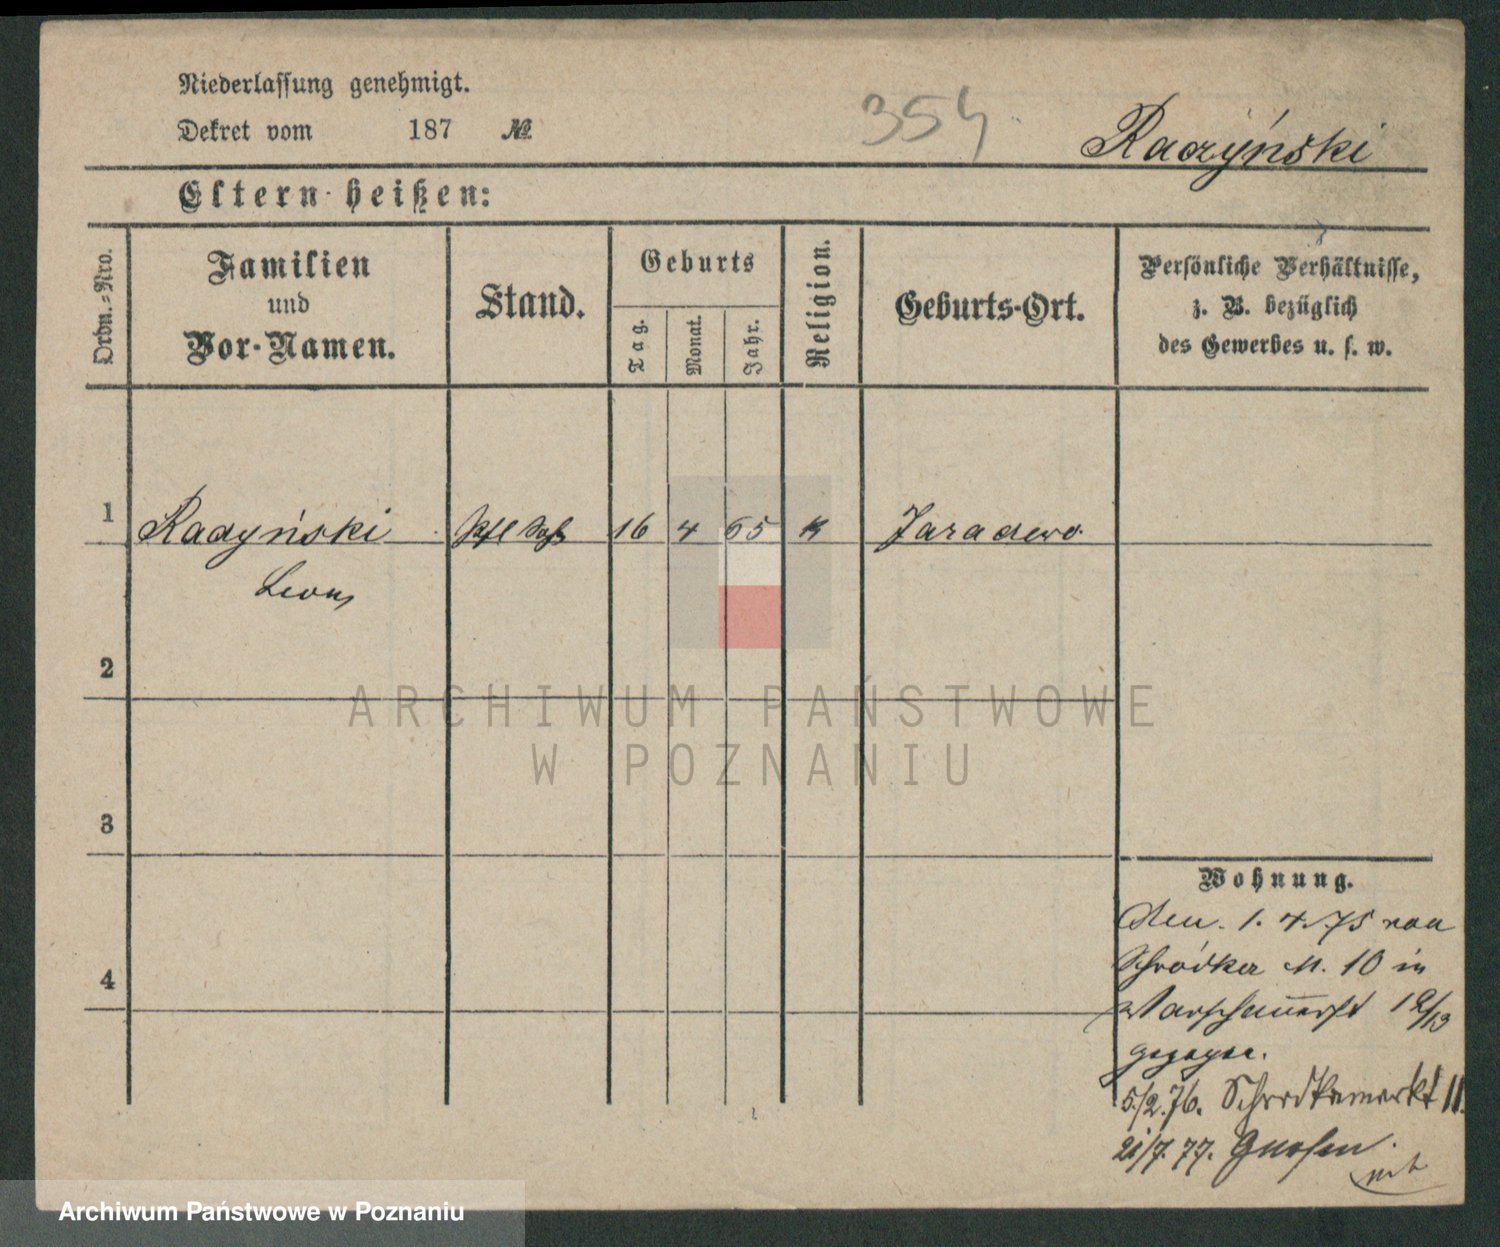 Niederlassung genehmigt.
Dekret vom 187 №
354
Raczyński
Eltern heißen:
Ordn.-Nro.
Familien
und
Vor-Namen.
Stand.
Geburts
Tag.
Monat.
Jahr.
Religion.
Geburts-Ort.
Persönliche Verhältnisse,
z. B. bezüglich
des Gewerbes u. s. w.
1 Raczyński 16 4 65 K Jaraczewo
Leon
2
3
4
Wohnung.
Den. 1. 4. 75 von
Schrodka N. 10 in
12/13
gezogen.
5/2. 76. Schrodkamarkt 11.
21/7. 77. Gnesen.
ARCHIWUM PAŃSTWOWE
W POZNANIU
Archiwum Państwowe w Poznaniu